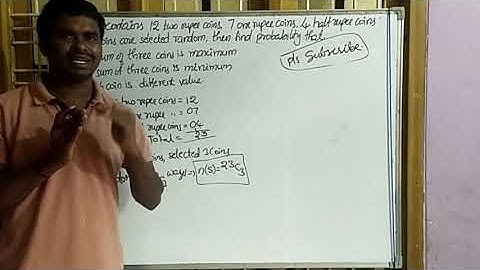 contains 12 two rupee coins, 7 one rupee coins, 4 half rupee coins
coins are selected random, then find probability that
sum of three coins is maximum
sum of three coins is minimum
coin is different value
pls Subscribe
two rupee coins = 12
rupee " = 07
rupee coins = 04
Total = 23
coins, selected 3 Coins
ways => n(s) = 23C3